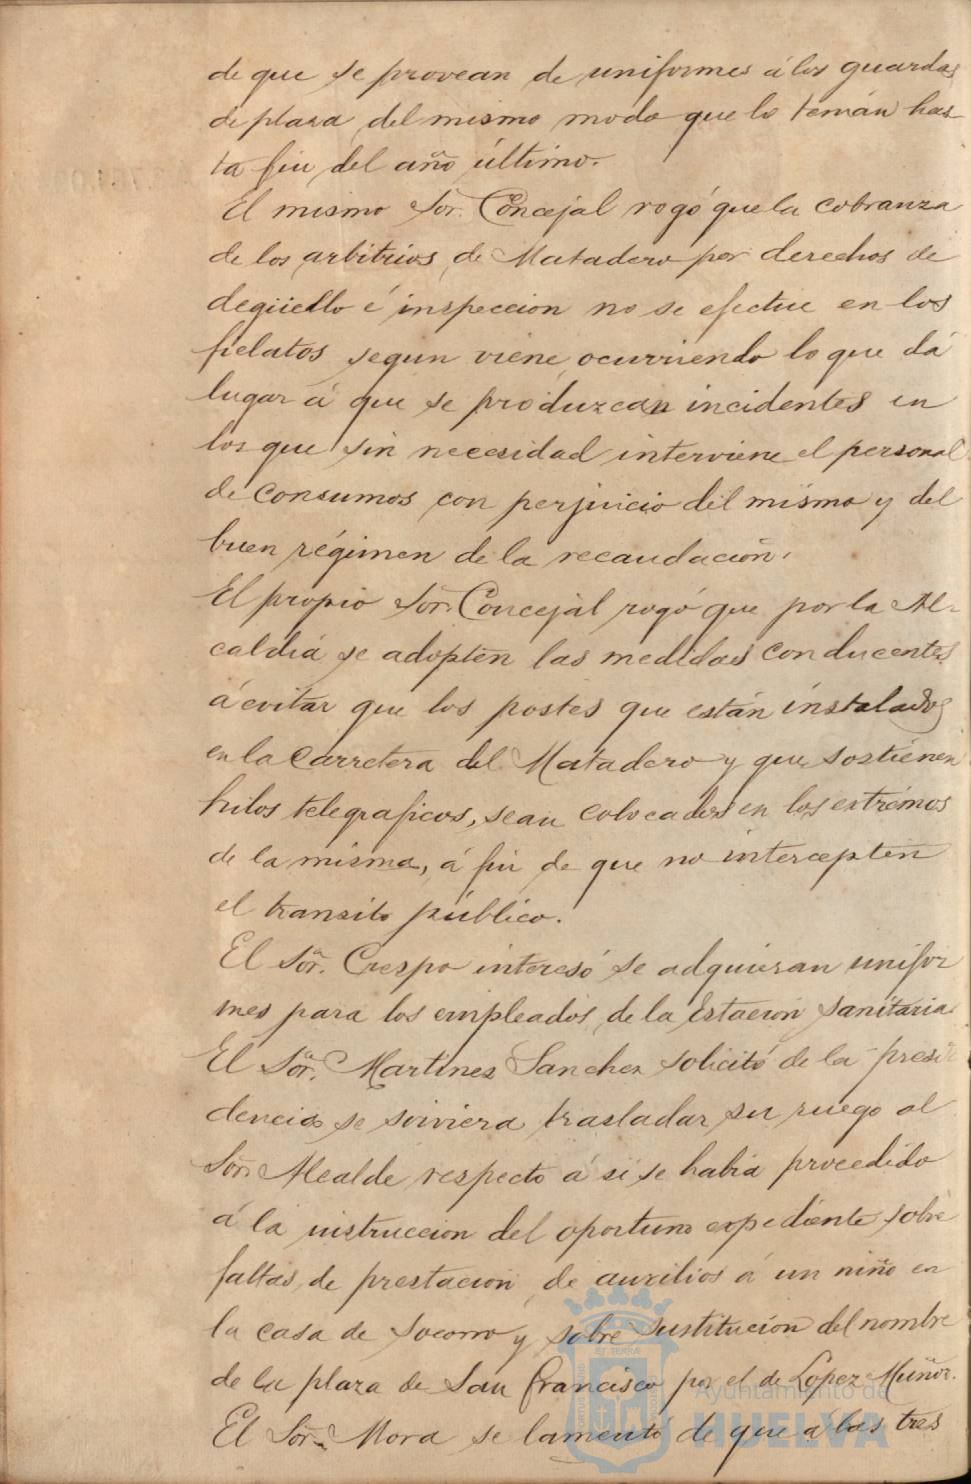 de que se provean de uniformes á los guardas
de plaza del mismo modo que lo tenián has-
ta fin del año último.
El mismo Sor. Concejal rogó que la cobranza
de los arbitrios de Matadero por derechos de
degüello é inspeccion no se efectue en los
fielatos segun viene ocurriendo lo que dá
lugar á que se produzcan incidentes en
los que sin necesidad interviene el personal
de consumos con perjuicio del mismo y del
buen régimen de la recaudación.
El propio Sor. Concejal rogó que por la Al-
caldiá se adopten las medidas conducentes
á evitar que los postes que están instalados
en la carretera del Matadero y que sostienen
hilos telegraficos, sean colocados en los extremos
de la misma, á fin de que no intercepten
el transito público.
El Sor. Crespo interesó se adquieran unifor
mes para los empleados de la Estación sanitaria.
El Sor. Martinez Sanchez solicitó de la presi
dencia se sirviera trasladar su ruego al
Sor. Alcalde respecto á si se habia procedido
á la instruccion del oportuno expediente sobre
faltas de prestación de auxilios á un niño en
la casa de socorro y sobre sustitución del nombre
de la plaza de San Francisco por el de Lopez Muñoz.
El Sor. Mora se lamentó de que á las tres
Ayuntamiento de
HUELVA